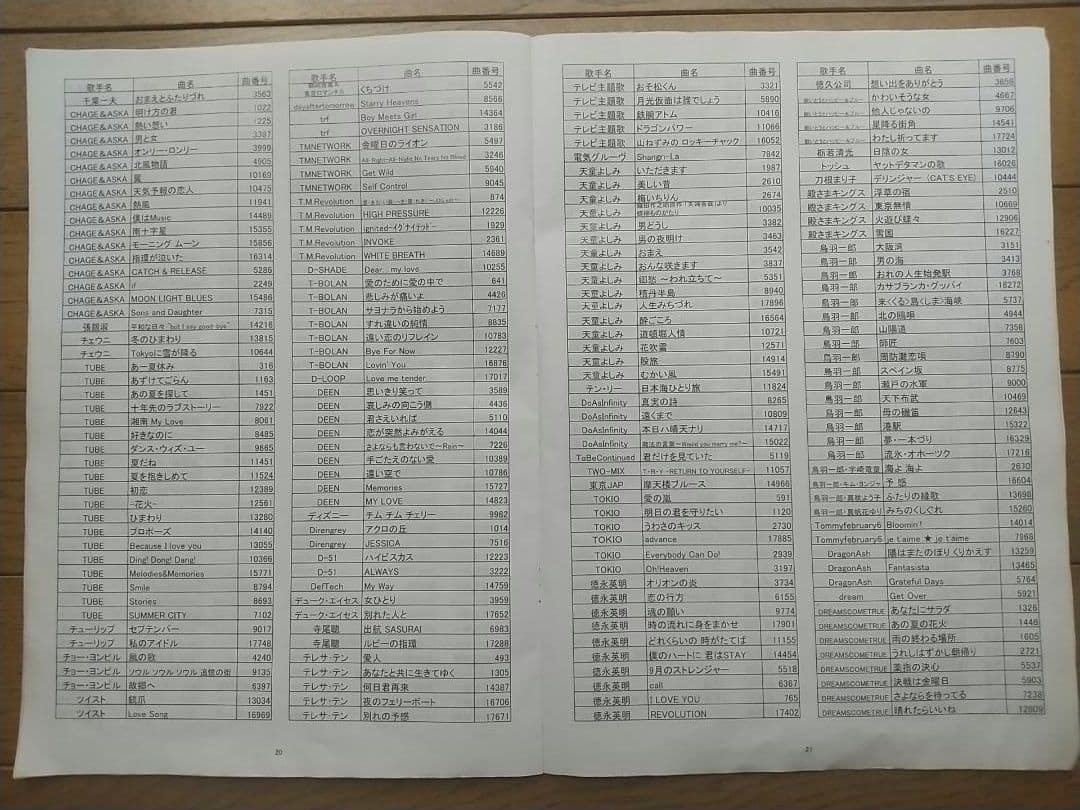 歌手名 曲名 曲番号
千葉一夫 おまえとふたりづれ 3563
CHAGE&ASKA 明け方の君 1022
CHAGE&ASKA 熱い想い 1225
CHAGE&ASKA 男と女 3387
CHAGE&ASKA オンリー・ロンリー 3999
CHAGE&ASKA 北風物語 4905
CHAGE&ASKA 翼 10169
CHAGE&ASKA 天気予報の恋人 10475
CHAGE&ASKA 熱風 11941
CHAGE&ASKA 僕はMusic 14489
CHAGE&ASKA 南十字星 15355
CHAGE&ASKA モーニング ムーン 15856
CHAGE&ASKA 指環が泣いた 16314
CHAGE&ASKA CATCH & RELEASE 5286
CHAGE&ASKA if 2249
CHAGE&ASKA MOON LIGHT BLUES 15486
CHAGE&ASKA Sons and Daughter 7315
張銀淑 平和な日々"but I say good-bye" 14216
チェウニ 冬のひまわり 13815
チェウニ Tokyoに雪が降る 10644
TUBE あー夏休み 316
TUBE あずけてごらん 1163
TUBE あの夏を探して 1451
TUBE 十年先のラブストーリー 7922
TUBE 湘南 My Love 8061
TUBE 好きなのに 8485
TUBE ダンス・ウィズ・ユー 9665
TUBE 夏だね 11451
TUBE 夏を抱きしめて 11524
TUBE 初恋 12389
TUBE -花火- 12561
TUBE ひまわり 13280
TUBE プロポーズ 14140
TUBE Because I love you 13055
TUBE Ding! Dong! Dang! 10366
TUBE Melodies&Memories 15771
TUBE Smile 8794
TUBE Stories 8693
TUBE SUMMER CITY 7102
チューリップ セプテンバー 9017
チューリップ 私のアイドル 17748
チョー・ヨンピル 風の歌 4240
チョー・ヨンピル ソウル ソウル ソウル 追憶の街 9135
チョー・ヨンピル 故郷へ 5397
ツイスト 銃爪 13034
ツイスト Love Song 16969
20
歌手名 曲名 曲番号
くちづけ 5542
dayaftertomorrow Starry Heavens 8566
trf Boy Meets Girl 14364
trf OVERNIGHT SENSATION 3186
TMNETWORK 金曜日のライオン 5497
TMNETWORK All-Right-All-Night No Tears No Blood 3246
TMNETWORK Get Wild 5940
TMNETWORK Self Control 9045
T.M.Revolution 874
T.M.Revolution HIGH PRESSURE 12226
T.M.Revolution ignited-イグナイテッド- 1929
T.M.Revolution INVOKE 2361
T.M.Revolution WHITE BREATH 14689
D-SHADE Dear... my love 10255
T-BOLAN 愛のために愛の中で 641
T-BOLAN 悲しみが痛いよ 4426
T-BOLAN サヨナラから始めよう 7177
T-BOLAN すれ違いの純情 8835
T-BOLAN 遠い恋のリフレイン 10783
T-BOLAN Bye For Now 12227
T-BOLAN Lovin' You 16876
D-LOOP Love me tender 17017
DEEN 思いきり笑って 3589
DEEN 哀しみの向こう側 4436
DEEN 君さえいれば 5110
DEEN 恋が突然よみがえる 14044
DEEN さよならも言わないで~Rain~ 7226
DEEN 手ごたえのない愛 10389
DEEN 遠い空で 10786
DEEN Memories 15727
DEEN MY LOVE 14823
ディズニー チム チム チェリー 9982
Direngrey アクロの丘 1014
Direngrey JESSICA 7516
D-51 ハイビスカス 12223
D-51 ALWAYS 3222
DefTech My Way 14759
デューク・エイセス 女ひとり 3959
デューク・エイセス 別れた人と 17652
寺尾聰 出航 SASURAI 6983
寺尾聰 ルビーの指環 17288
テレサ・テン 愛人 493
テレサ・テン あなたと共に生きてゆく 1305
テレサ・テン 何日君再来 14387
テレサ・テン 夜のフェリーボート 16706
テレサ・テン 別れの予感 17671
歌手名 曲名 曲番号
テレビ主題歌 おそ松くん 3321
テレビ主題歌 月光仮面は誰でしょう 5890
テレビ主題歌 鉄腕アトム 10416
テレビ主題歌 ドラゴンパワー 11066
テレビ主題歌 山ねずみの ロッキーチャック 16052
電気グルーヴ Shangri-La 7842
天童よしみ いただきます 1987
天童よしみ 美しい昔 2610
天童よしみ 梅いちりん 2674
天童よしみ 10035
天童よしみ 男どうし 3382
天童よしみ 男の夜明け 3463
天童よしみ おまえ 3542
天童よしみ おんな咲きます 3837
天童よしみ 郷愁 ~われ立ちて~ 5351
天童よしみ 積丹半島 8940
天童よしみ 人生みちづれ 17896
天童よしみ 酔ごころ 16564
天童よしみ 道頓堀人情 10721
天童よしみ 花吹雪 12571
天童よしみ 股旅 14914
天童よしみ むかい風 15491
テン・リー 日本海ひとり旅 11824
DoAsInfinity 真実の詩 8265
DoAsInfinity 遠くまで 10809
DoAsInfinity 本日ハ晴天ナリ 14717
DoAsInfinity 魔法の言葉~Would you marry me?~ 15022
ToBeContinued 君だけを見ていた 5119
TWO-MIX T・R・Y -RETURN TO YOURSELF- 11057
東京JAP 摩天楼ブルース 14966
TOKIO 愛の嵐 591
TOKIO 明日の君を守りたい 1120
TOKIO うわさのキッス 2730
TOKIO advance 17885
TOKIO Everybody Can Do! 2939
TOKIO Oh!Heaven 3197
徳永英明 オリオンの炎 3734
徳永英明 恋の行方 6155
徳永英明 魂の願い 9774
徳永英明 時の流れに身をまかせ 17901
徳永英明 どれくらいの 時がたてば 11155
徳永英明 僕のハートに 君はSTAY 14454
徳永英明 9月のストレンジャー 5518
徳永英明 call 6367
徳永英明 I LOVE YOU 765
徳永英明 REVOLUTION 17402
21
歌手名 曲名 曲番号
徳久公司 想い出をありがとう 3656
かわいそうな女 4667
他人じゃないの 9706
星降る街角 14541
わたし祈ってます 17724
栃若清光 日陰の女 13012
トッシュ ヤットデタマンの歌 16026
刀根まり子 デリンジャー (CAT'S EYE) 10444
殿さまキングス 浮草の宿 2510
殿さまキングス 東京無情 10669
殿さまキングス 火遊び蝶々 12906
殿さまキングス 雪国 16227
鳥羽一郎 大阪湾 3151
鳥羽一郎 男の海 3413
鳥羽一郎 おれの人生始発駅 3768
鳥羽一郎 カサブランカ・グッバイ 18272
鳥羽一郎 来〈くる〉島〈しま〉海峡 5737
鳥羽一郎 北の鴎唄 4944
鳥羽一郎 山陽道 7358
鳥羽一郎 師匠 7603
鳥羽一郎 周防灘恋唄 8790
鳥羽一郎 スペイン坂 8775
鳥羽一郎 瀬戸の水軍 9000
鳥羽一郎 天下布武 10469
鳥羽一郎 母の磯笛 12643
鳥羽一郎 港駅 15322
鳥羽一郎 夢・一本づり 16329
鳥羽一郎 流氷・オホーツク 17216
鳥羽一郎・宇崎竜童 海よ 海よ 2630
鳥羽一郎・キム・ヨンジャ 予感 16604
鳥羽一郎・真咲よう子 ふたりの縁歌 13698
みちのくしぐれ 15260
Tommyfebruary6 Bloomin! 14014
Tommyfebruary6 je t'aime ★ je t'aime 7968
DragonAsh 陽はまたのぼりくりかえす 13259
DragonAsh Fantasista 13465
DragonAsh Grateful Days 5764
dream Get Over 5921
DREAMSCOMETRUE あなたにサラダ 1326
DREAMSCOMETRUE あの夏の花火 1446
DREAMSCOMETRUE 雨の終わる場所 1605
DREAMSCOMETRUE うれしはずかし朝帰り 2721
DREAMSCOMETRUE 薬指の決心 5537
DREAMSCOMETRUE 決戦は金曜日 5903
DREAMSCOMETRUE さよならを待ってる 7238
DREAMSCOMETRUE 晴れたらいいね 12809